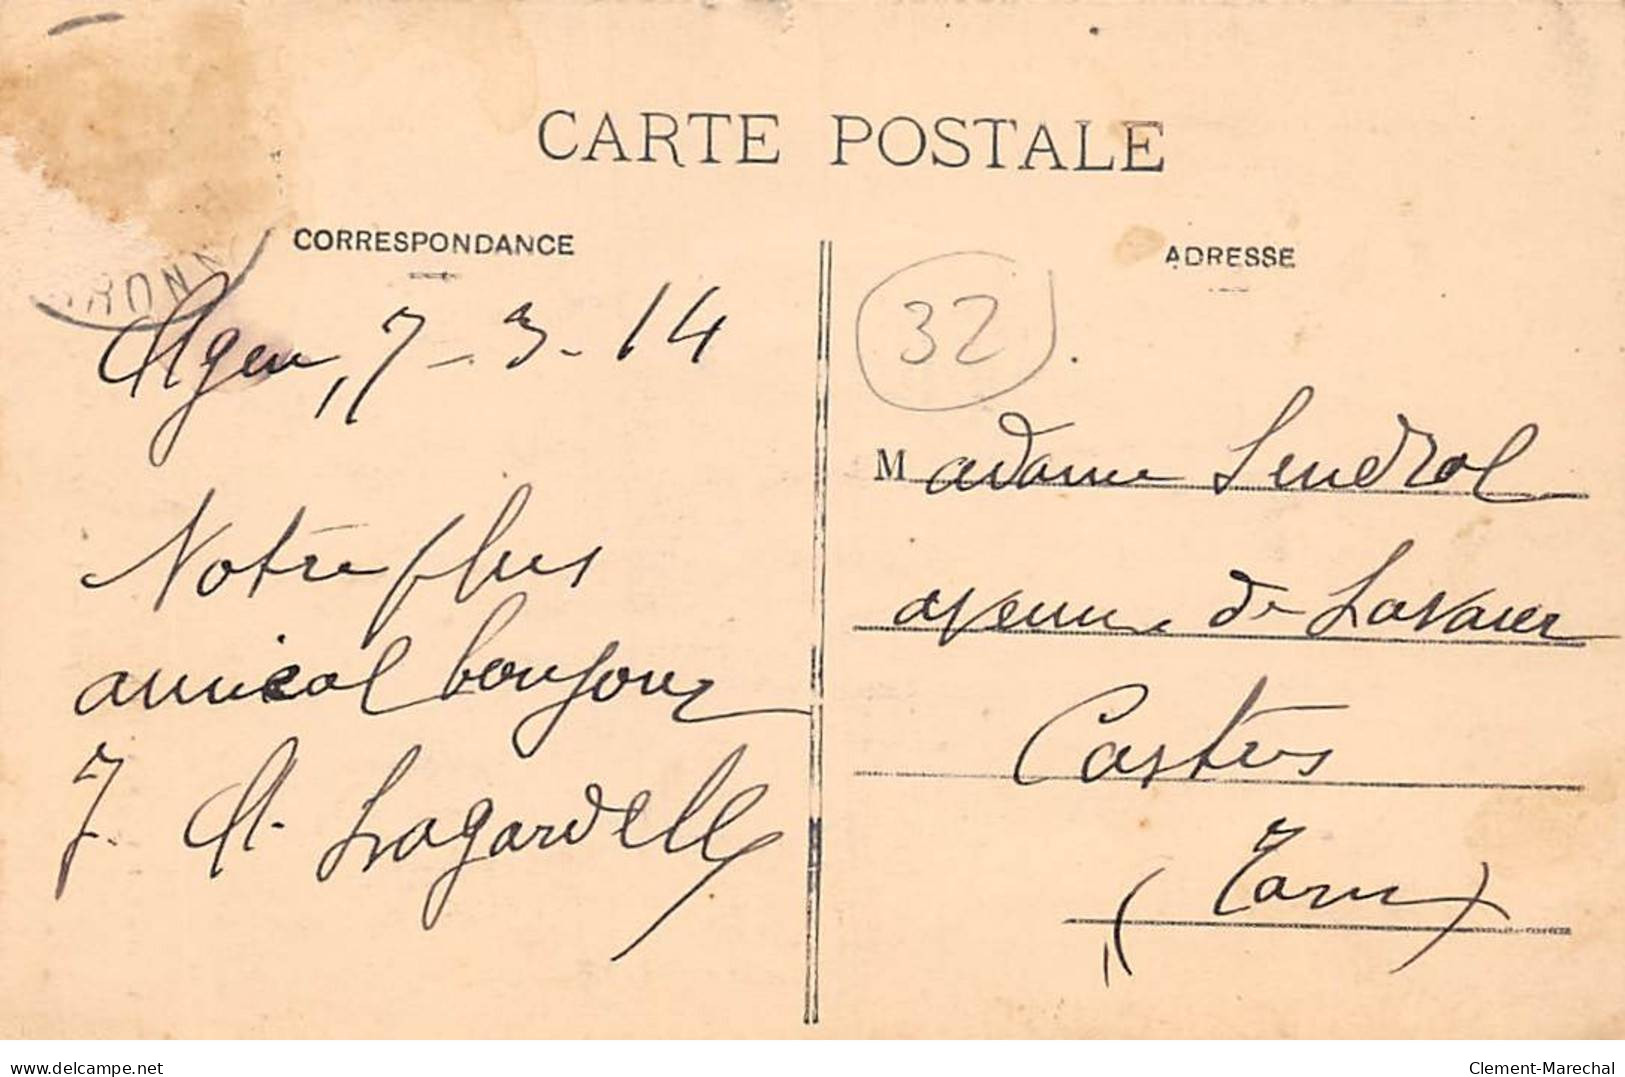 CARTE POSTALE
CORRESPONDANCE
RONN
Agen, 7-3-14
Notre plus
amical bonjour
J. A. Lagardelle
ADRESSE
32
Madame Sendral
avenue de Lavaur
Castres
(Tarn)
www.delcampe.net
Clement-Marechal